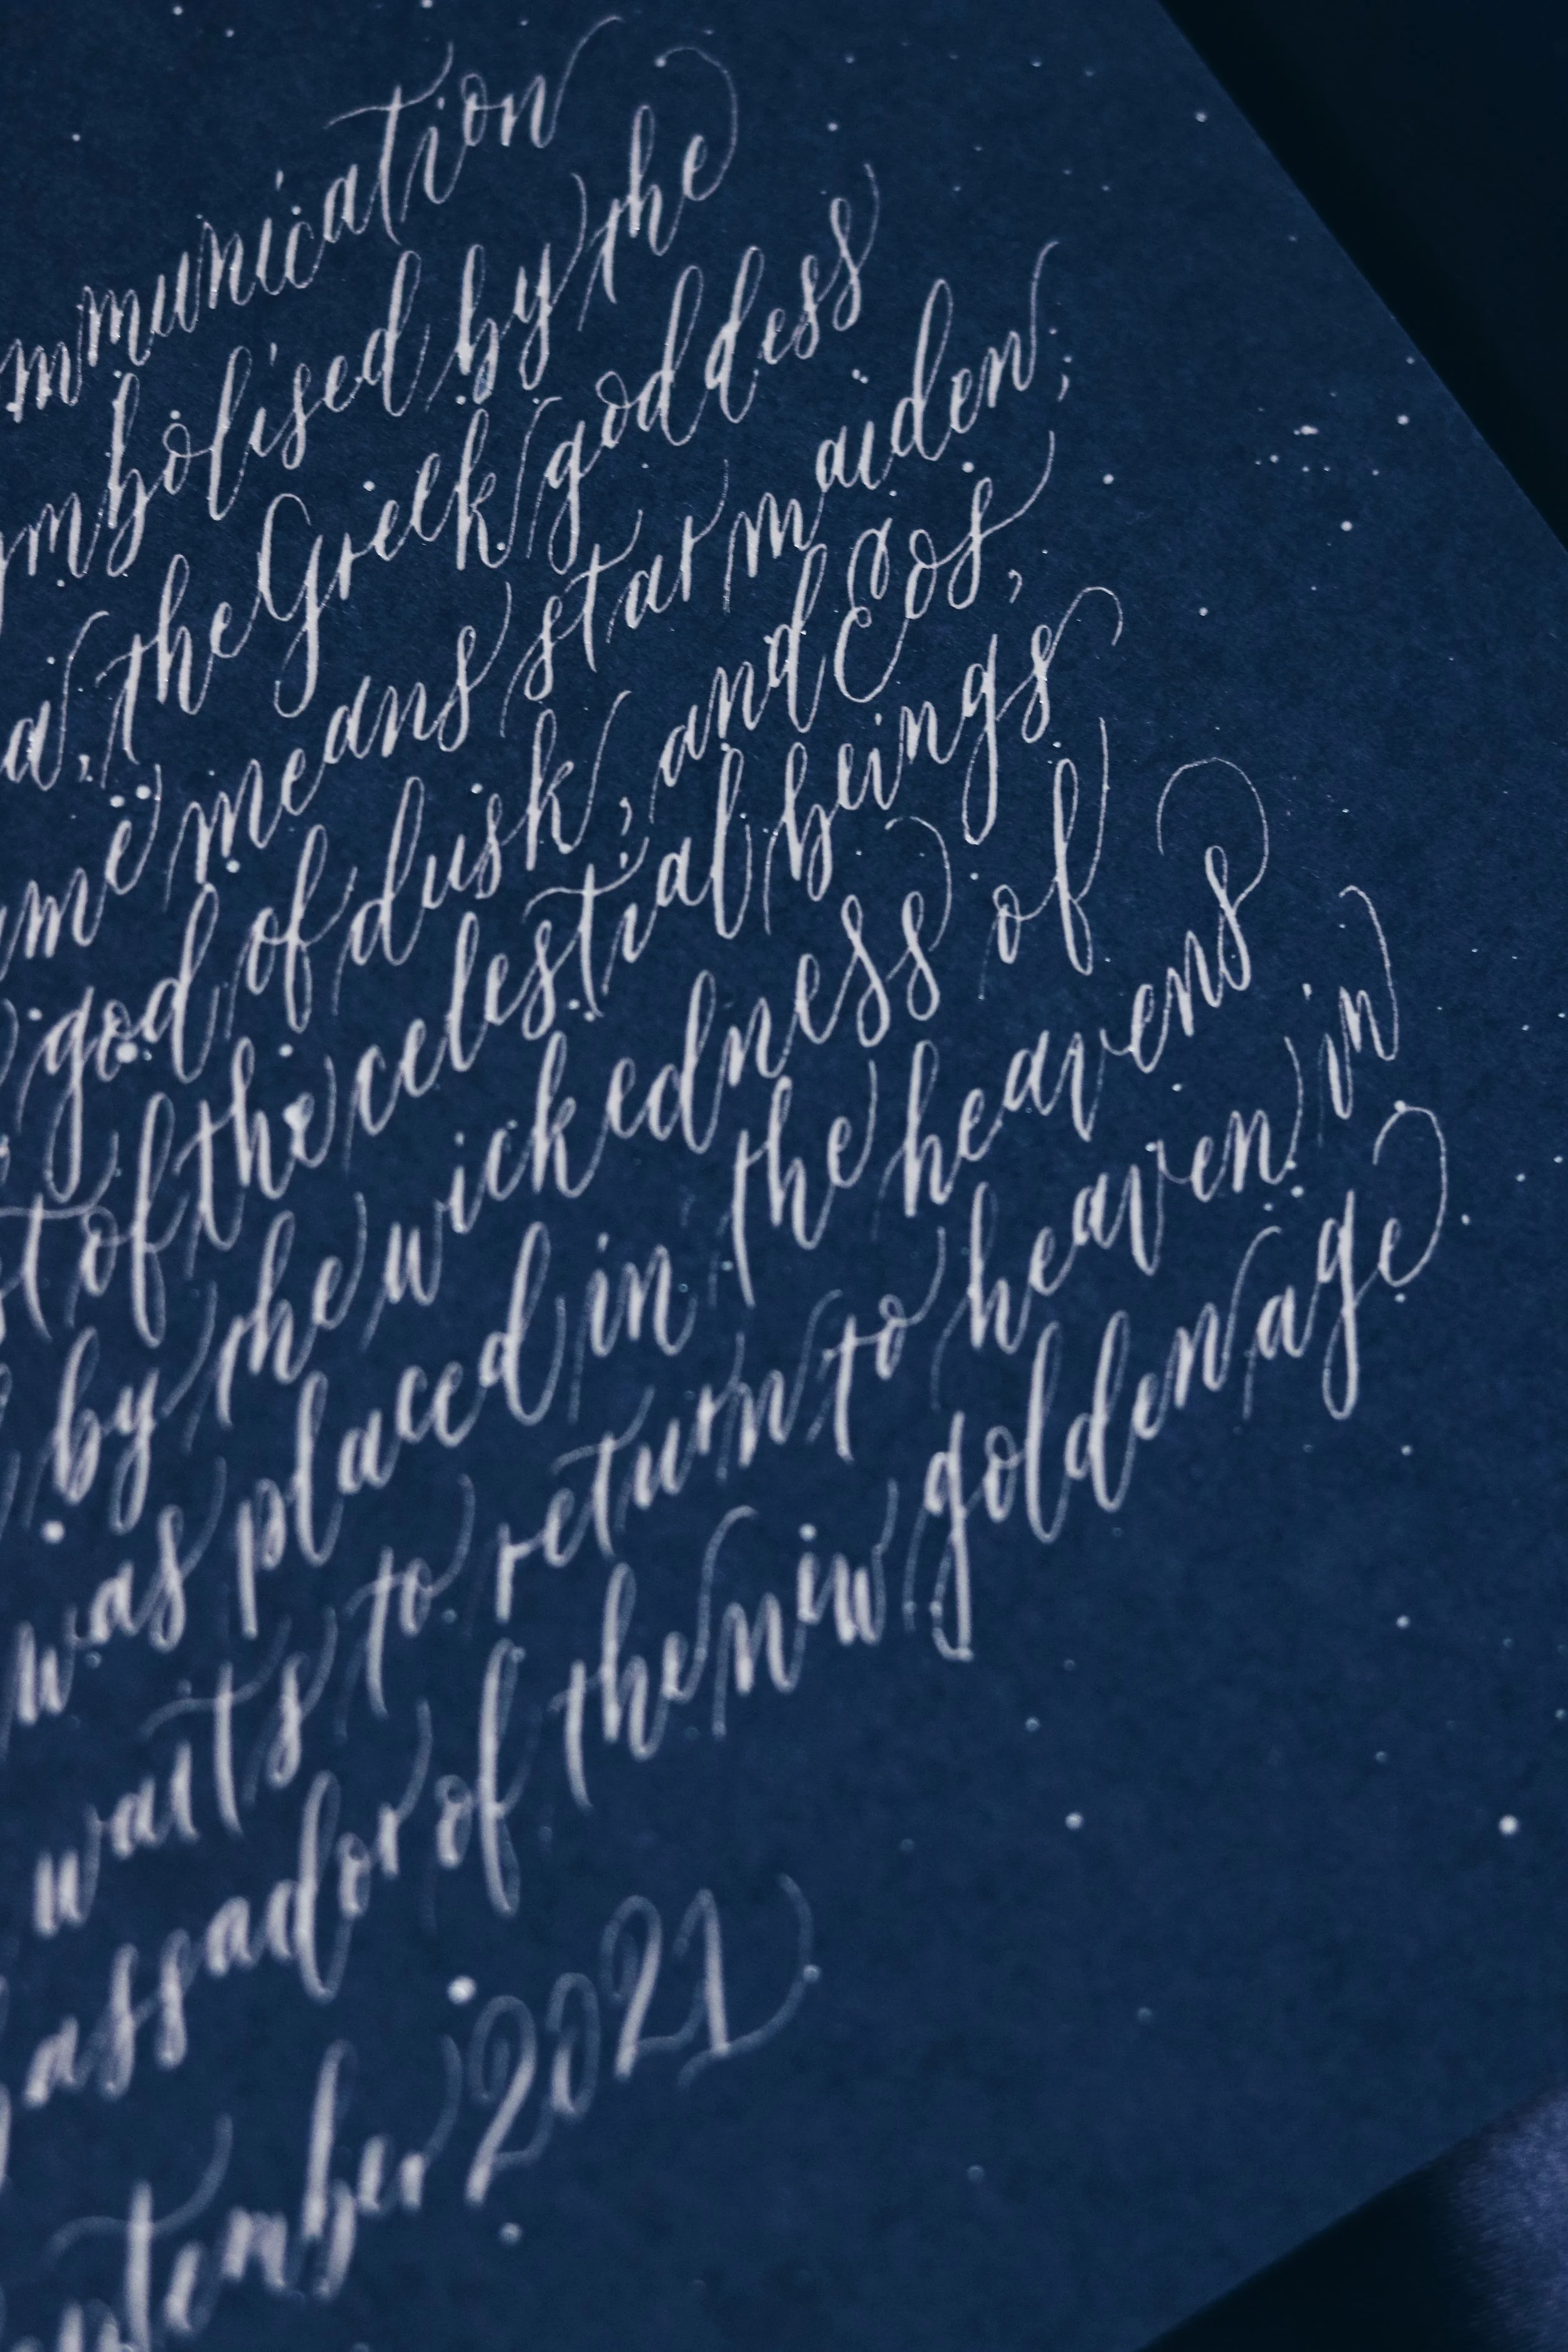 mmunication
ymbolised by the
a, the Greek goddess
me means star maiden;
god of dusk, and Eos,
st of the celestial beings
by the wickedness of
was placed in the heavens
waits to return to heaven in
assador of the new golden age
ptember 2021